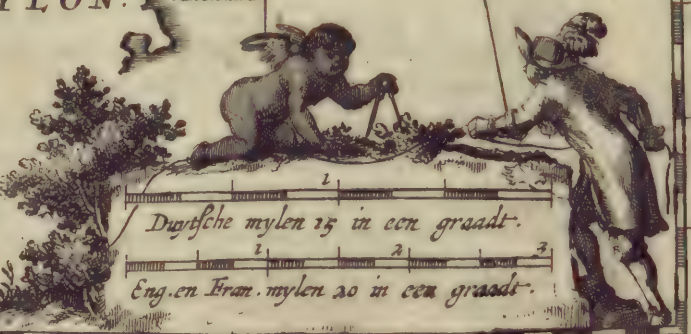 YLON.
1
Duytsche mylen 15 in een graadt.
1 2 3
Eng.en Fran.mylen 20 in een graadt.